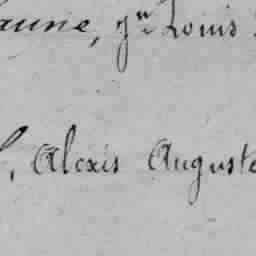 aune, Jn Louis
, Alexis Auguste